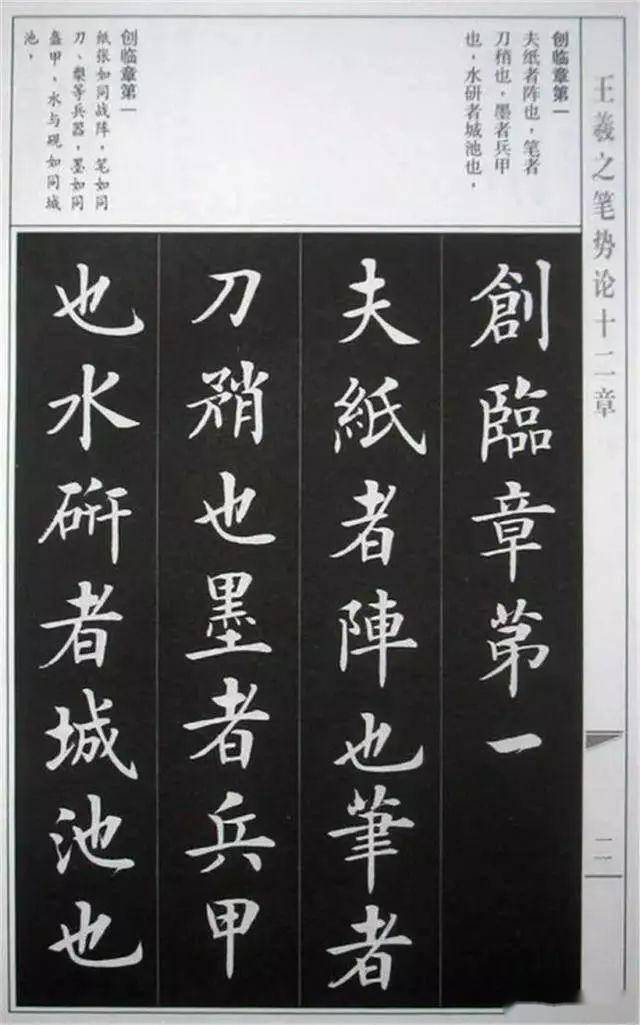 王羲之笔势论十二章
二
创临章第一
夫纸者阵也，笔者
刀稍也，墨者兵甲
也，水研者城池也，
创临章第一
纸张如同战阵，笔如同
刀、槊等兵器，墨如同
盔甲，水与砚如同城
池，
創臨章苐一
夫紙者陣也筆者
刀矟也墨者兵甲
也水研者城池也